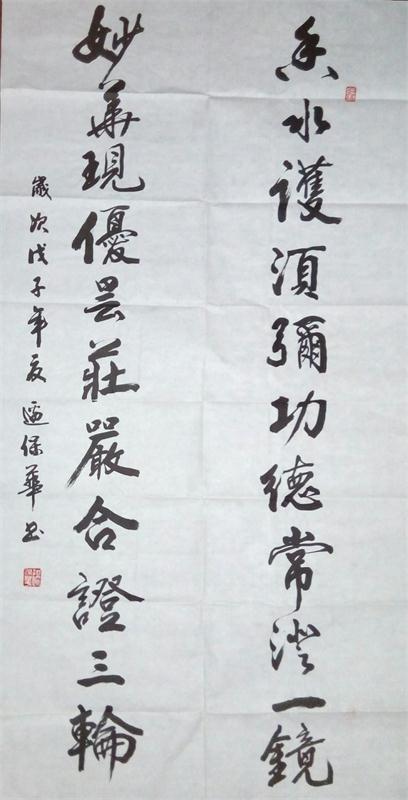 香水護須彌功德常澄一鏡
妙華現優曇莊嚴合證三輪
歲次戊子年夏 保華书